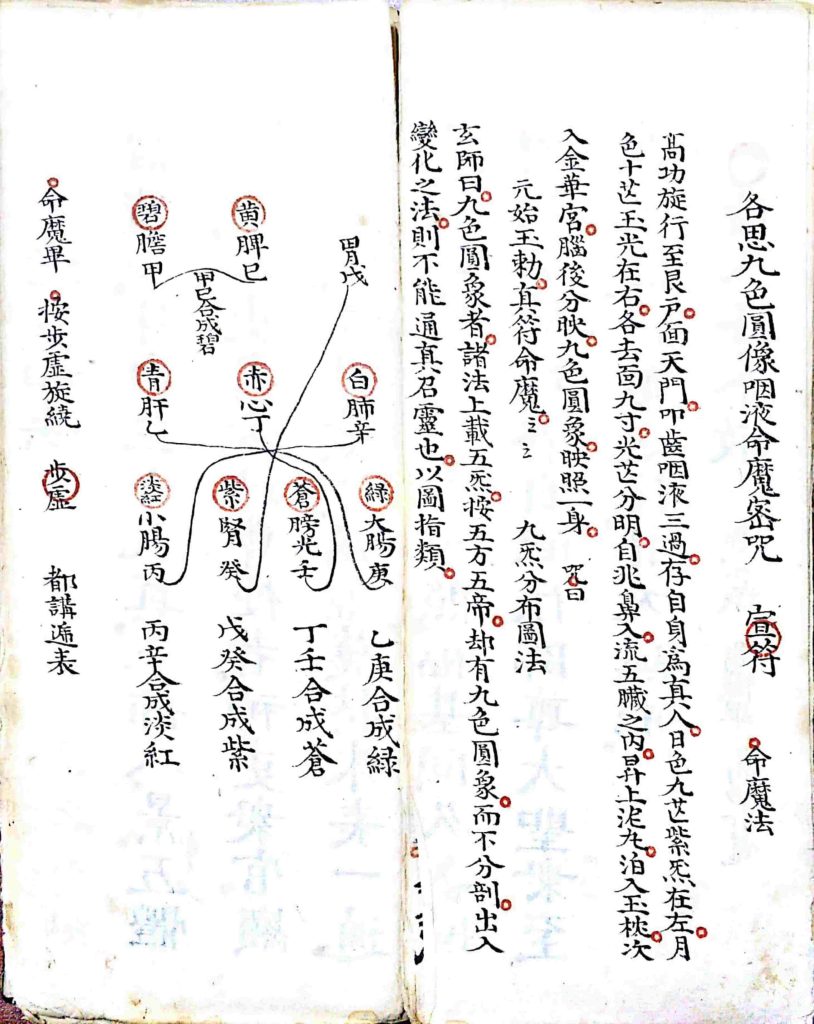 各思九色圓像咽液命魔密咒　宣符　命魔法
高功旋行至艮戸面天門叩齒咽液三過存自身爲真人日色九芒紫炁在左月
色十芒玉光在右各去面九寸光芒分明自兆鼻入流五臟之內昇上泥丸泊入玉枕次
入金華宮腦後分映九色圓象映照一身　咒曰
元始玉勅真符命魔　九炁分布圖法
玄師曰九色圓象者諸法上載五炁按五方五帝却有九色圓象而不分剖出入
變化之法則不能通真召靈也以圖指類
胃戊
黃　脾巳
碧　膽甲
甲巳合成碧
白　肺辛
赤　心丁
青　肝乙
綠　大腸庚
蒼　膀光壬
紫　腎癸
淡紅　小腸丙
乙庚合成綠
丁壬合成蒼
戊癸合成紫
丙辛合成淡紅
命魔畢　按步虛旋繞　步虛　都講遞表